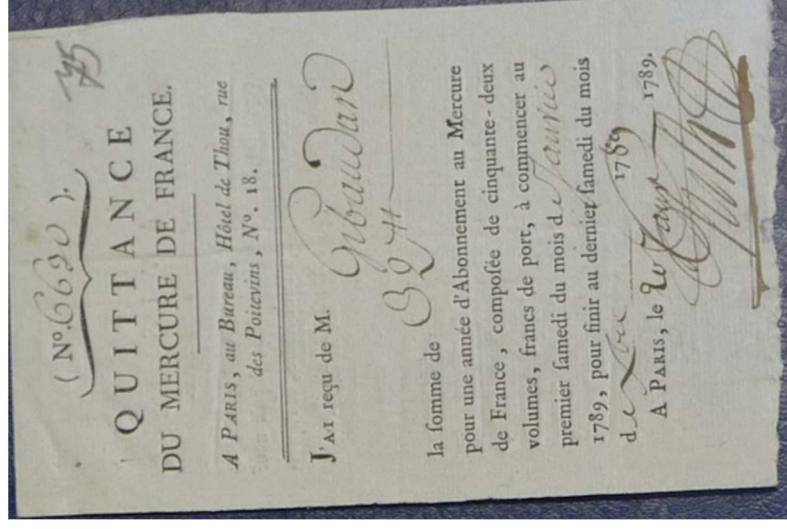 75
(N°. 6690).
QUITTANCE
DU MERCURE DE FRANCE.
A PARIS, au Bureau, Hôtel de Thou, rue
des Poitevins, N°. 18.
J'AI reçu de M. Gibaudan
la ſomme de
pour une année d'Abonnement au Mercure
de France, compoſée de cinquante-deux
volumes, francs de port, à commencer au
premier ſamedi du mois de Janvier
1789, pour finir au dernier ſamedi du mois
de 1789
A PARIS, le 1789.